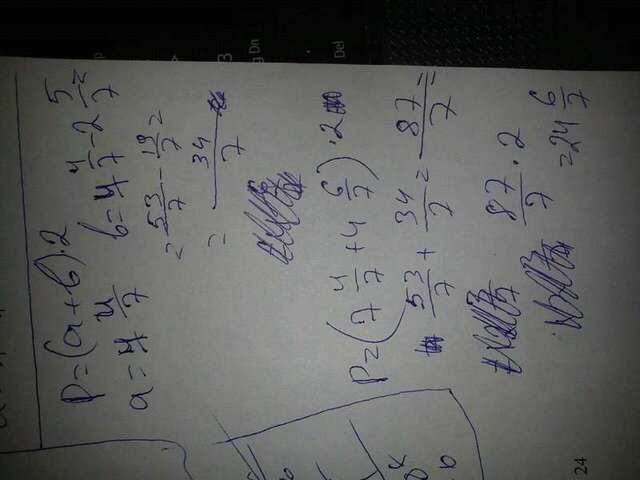 P=(a+b)·2
a=7 4/7 b=7 4/7-2 5/7=
=53/7-19/7=
=34/7
P=(7 4/7+4 6/7)·2
53/7+34/7=87/7=
87/7·2
=24 6/7
24
Del